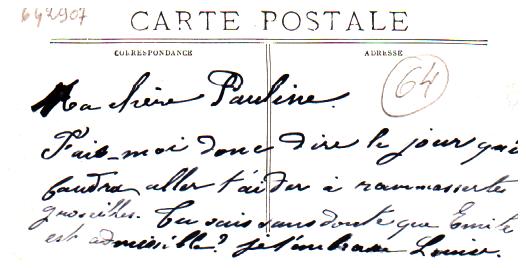 642907
CARTE POSTALE
CORRESPONDANCE
ADRESSE
64
Ma chère Pauline.
Fais-moi donc dire le jour qu'il
faudra aller t'aider à ramasser tes
groseilles. Tu sais sans doute que Emile
est admissible? je t'embrasse Louise.